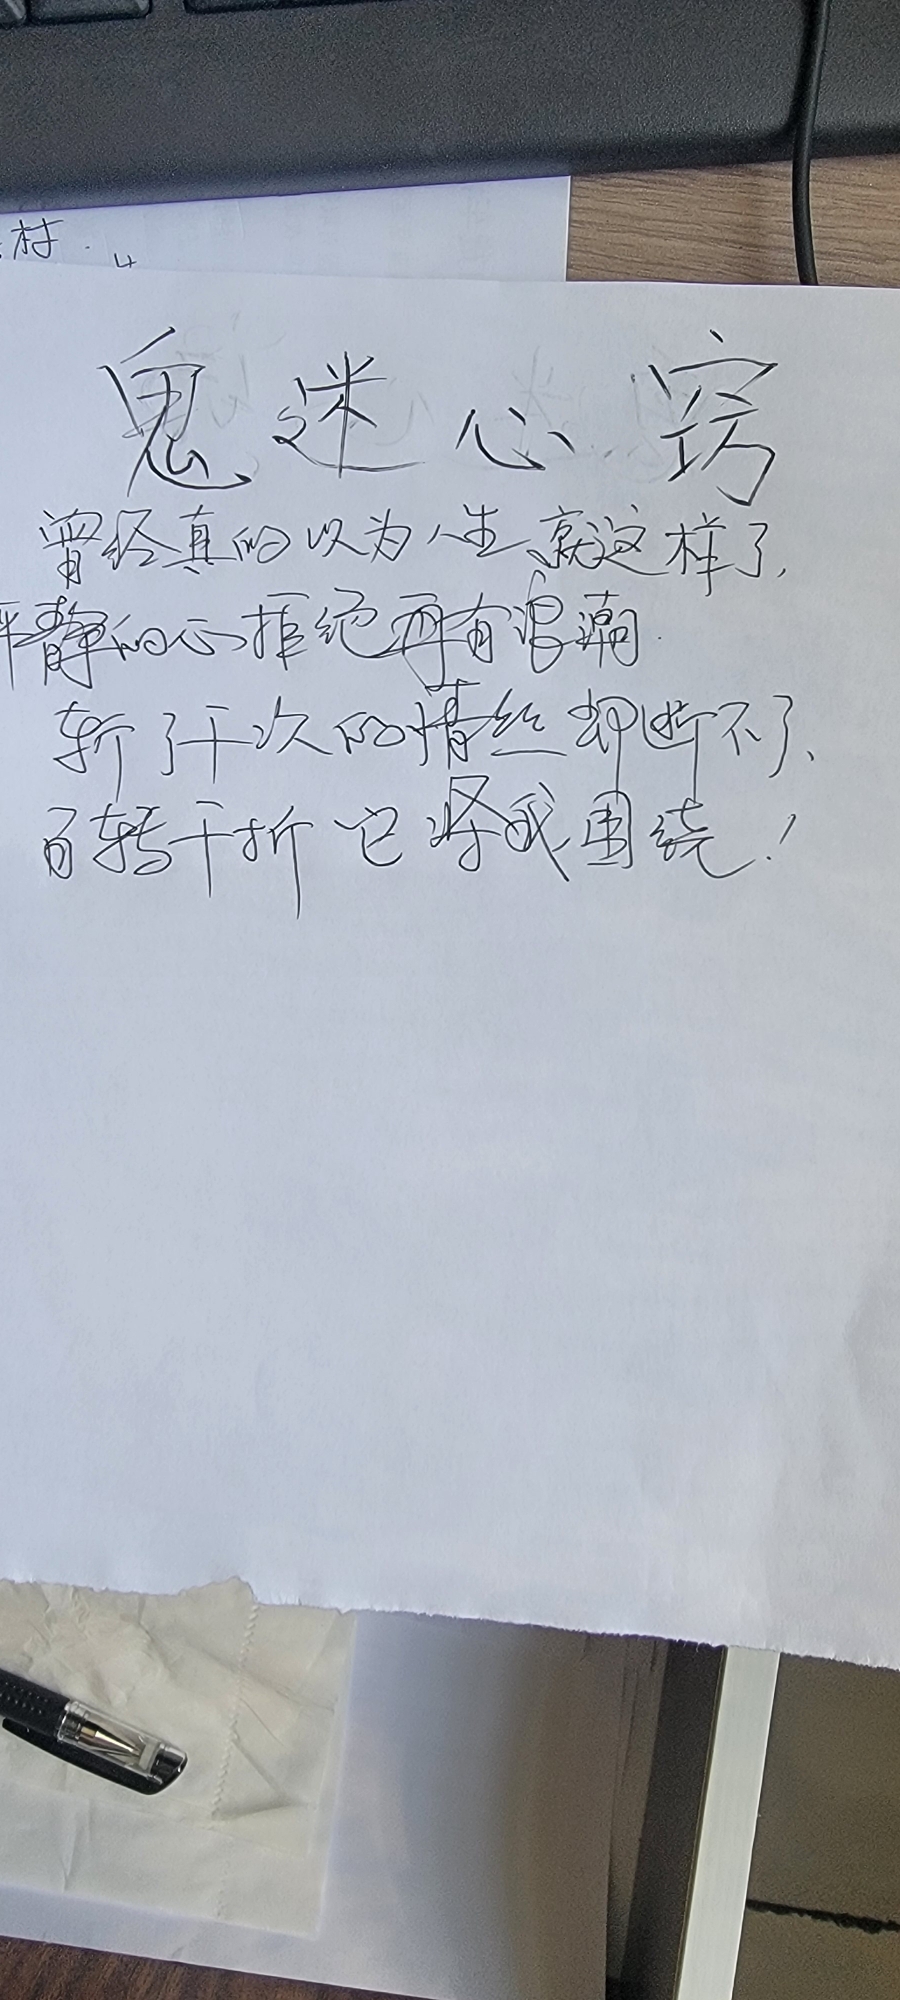 村.
鬼迷心窍
曾经真的以为人生就这样了,
平静的心拒绝再有浪潮.
斩了千次的情丝却断不了、
百转千折它将我围绕!